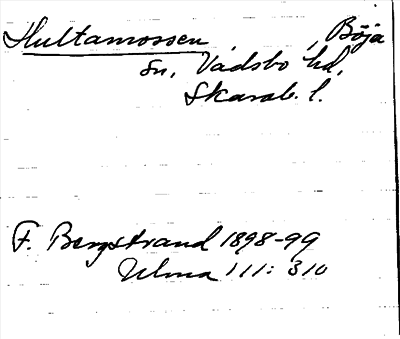 Hultamossen, , Böja
sn, Vadsbo hd,
Skarab. l.
F. Bergstrand 1898-99
Ulma 111: 310